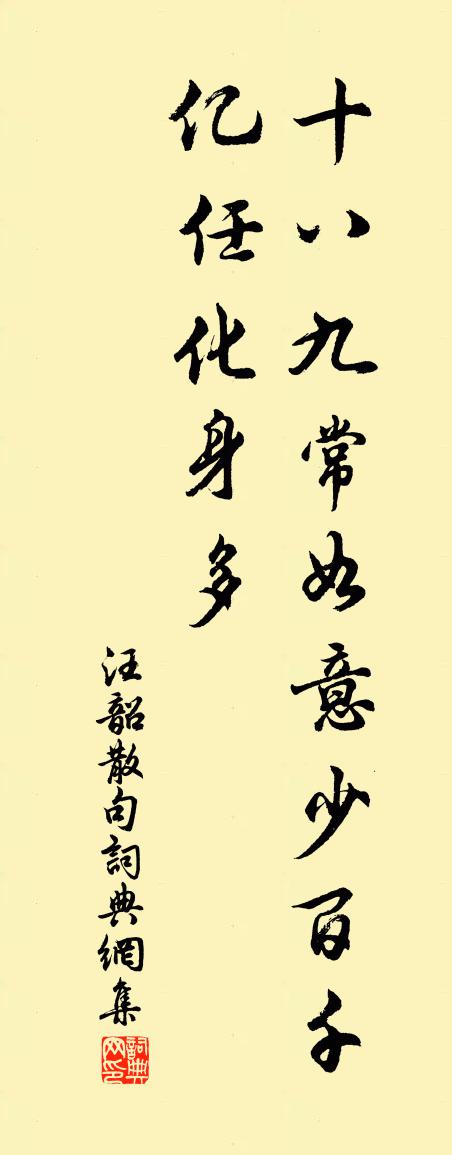 十八九常如意少百千
亿任化身多
汪韶散句詞典網集
詞典网印